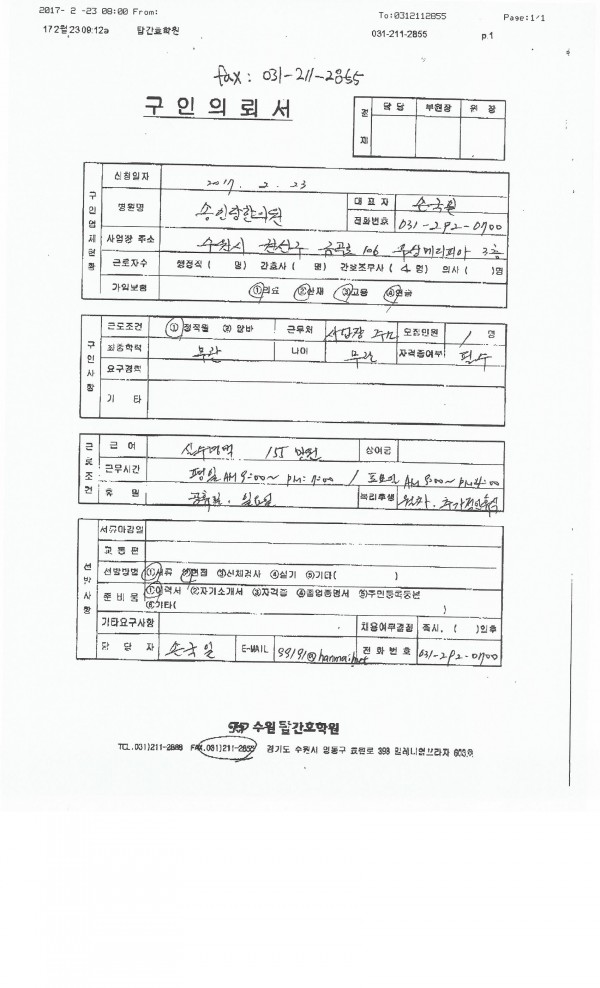 2017- 2 -23 08:00 From: To:0312112855 Page:1/1
17 2월 23 09:12a 탑간호학원 031-211-2855 p.1
fax : 031-211-2855
구 인 의 뢰 서
결 재 담 당 부원장 원 장
구인업체현황
신청일자 2017. 2. 23
병원명 송인당한의원 대 표 자 손국일
전화번호 031-292-0700
사업장 주소 수원시 권선구 금곡로 106 3층
근로자수 행정직 ( 명) 간호사 ( 명) 간호조무사 ( 4 명) 의사 ( )명
가입보험 ①의료 ②산재 ③고용 ④연금
구인사항
근로조건 ① 정직원 ② 알바 근무처 모집인원 1 명
최종학력 무관 나이 무관 자격증여부 필수
요구경력
기 타
근로조건
급 여 155 만원 상여금
근무시간 평일 AM 9:00~ PM: 7:00 / 토요일 AM 9:00~ PM 4:00
휴 일 공휴일, 일요일 복리후생
선발사항
서류마감일
교 통 편
선발방법 ①서류 ②면접 ③신체검사 ④실기 ⑤기타( )
준 비 물 ①이력서 ②자기소개서 ③자격증 ④졸업증명서 ⑤주민등록등본
⑥기타( )
기타요구사항 채용여부결정 즉시, ( )일후
담 당 자 손국일 E-MAIL 99191@hanmail.net 전 화 번 호 031-292-0700
수원 탑간호학원
TEL.031)211-2888 FAX.031)211-2855 경기도 수원시 영통구 효원로 393 밀레니엄프라자 603호